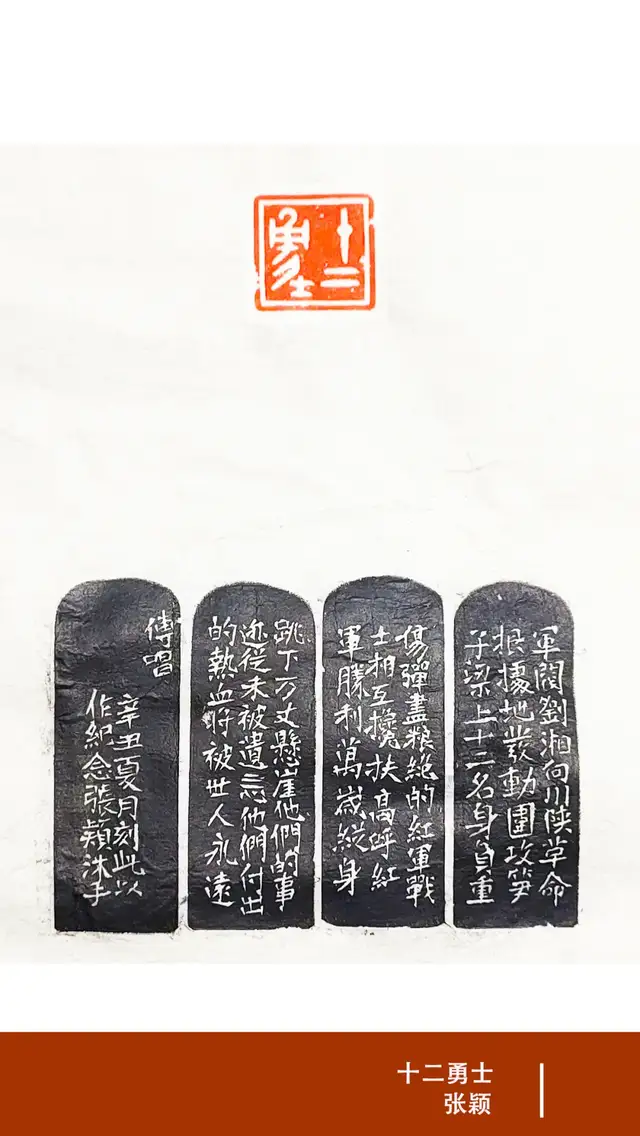 十二
勇士
軍閥劉湘向川陝革命
根據地發動圍攻笋
子梁上十二名身負重
傷彈盡粮絶的紅軍戰
士相互攙扶高呼紅
軍勝利萬歲縱身
跳下万丈懸崖他們的事
迹從未被遺忘他們付出
的熱血將被世人永遠
傳唱
辛丑夏月刻此以
作紀念張穎沐手
十二勇士
张颖